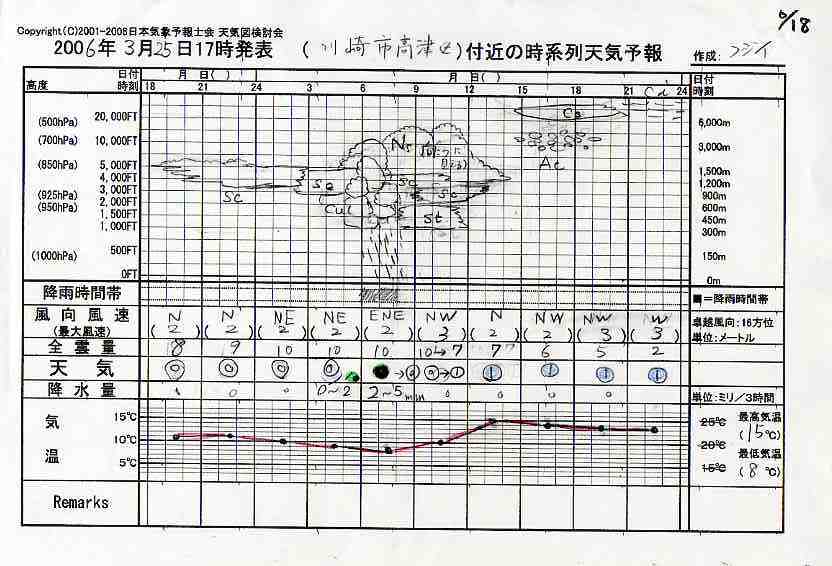 6/18
Copyright(C)2001-2006日本気象予報士会 天気図検討会
2006年3月25日17時発表 (川崎市高津区)付近の時系列天気予報 作成:フジイ
日付 月 日( ) 月 日( ) 日付
高度 時刻 18 21 24 3 6 9 12 15 18 21 24 時刻
Cd
(500hPa) 20,000FT Cs 6,000m
(700hPa) 10,000FT Ns 3,000m
Ac
(850hPa) 5,000FT 1,500m
4,000FT Sc Sc 1,200m
(925hPa) 3,000FT Sc Sc 900m
(950hPa) 2,000FT Cu 600m
1,500FT St 450m
1,000FT 300m
(1000hPa) 500FT 150m
0FT 0m
降雨時間帯 ■=降雨時間帯
風向風速 N N NE NE ENE NW N NW NW W 卓越風向:16方位
(最大風速) (2) (2) (2) (2) (2) (3) (2) (2) (3) (3) 単位:メートル
全雲量 8 9 10 10 10 10→7 7 6 5 2
天気 ◎ ◎ ◎ ◎ ● →◎ ◎→① ① ① ① ①
降水量 0 0 0~2 2~5mm 0 0 0 0 単位:ミリ/3時間
気温 15℃ 10℃ 5℃
25℃ 20℃ 15℃
最高気温
(15℃)
最低気温
(8℃)
Remarks